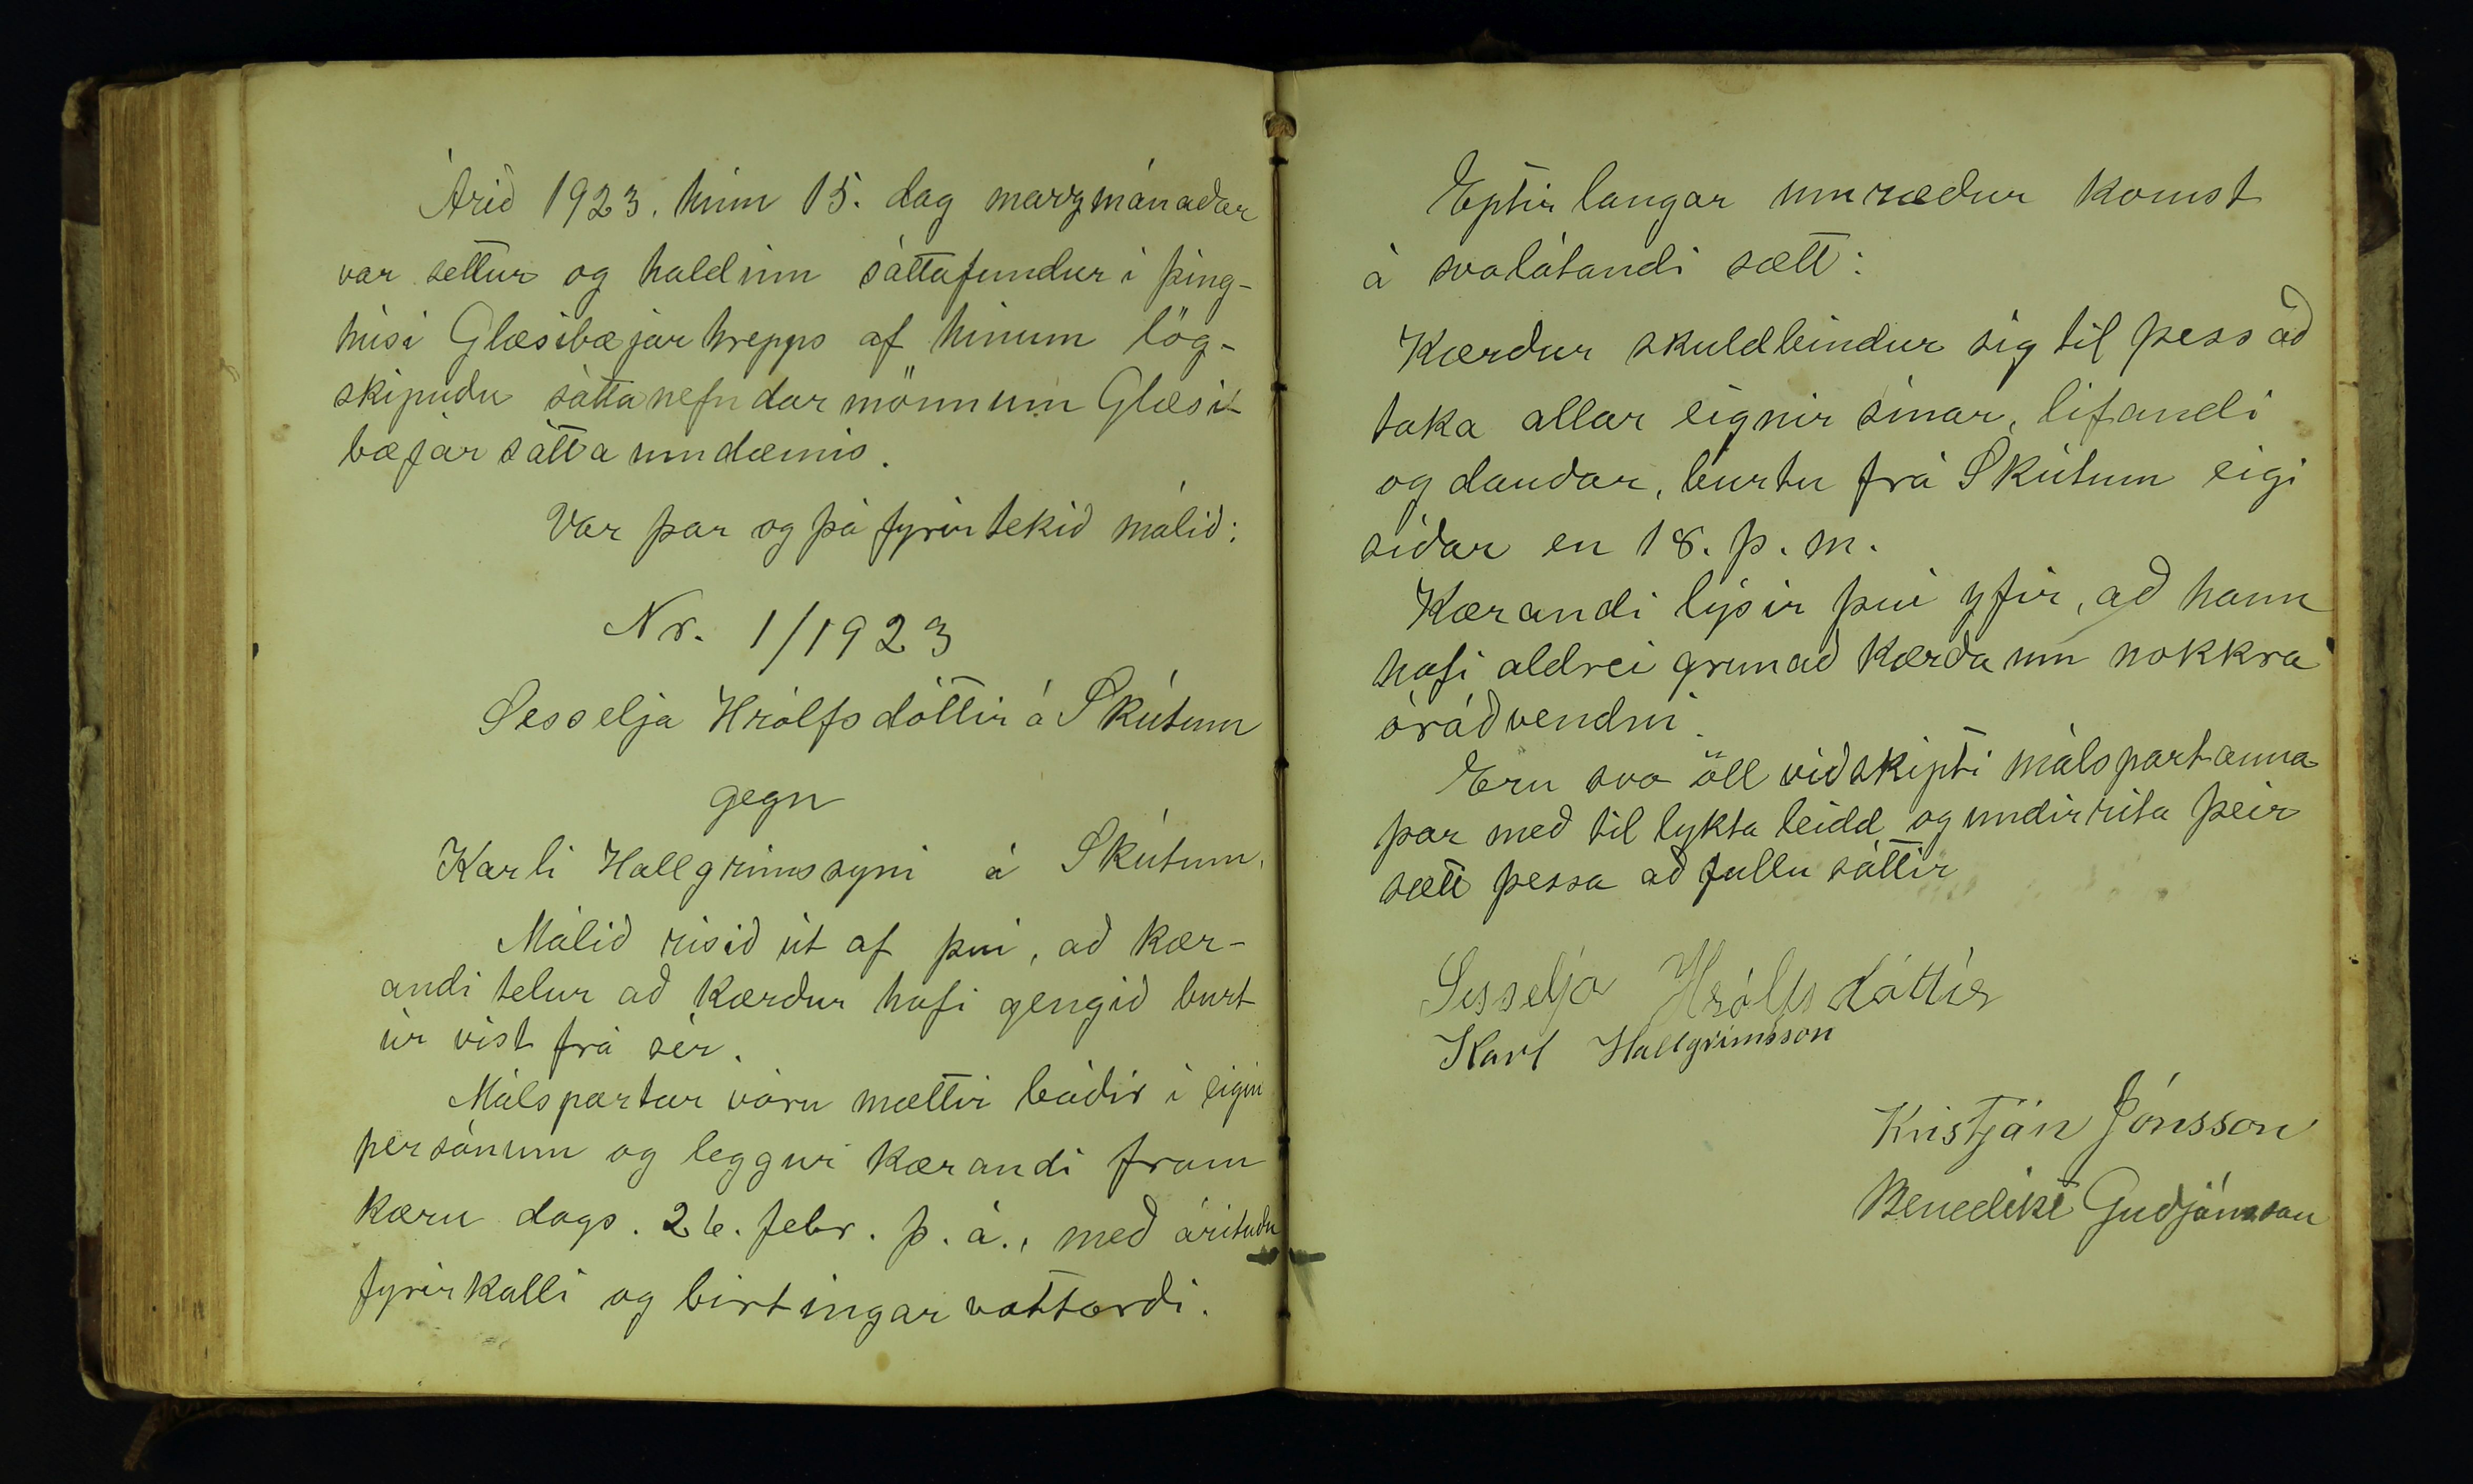 Árið 1923, hinn 15. dag marzmánaðar
var settur og haldinn sáttafundur i þing-
húsi Glæsibæjarhrepps af hinum lög-
skipuðu sáttanefndarmönnum Glæsi-
bæjar sáttaumdæmis.
Var þar og þá fyrirtekið málið:
Nr. 1/1923
Sesselja Hrólfsdóttir á Skútum
gegn
Karli Hallgrímssyni á Skútum.
Málið risið út af því, að kær-
andi telur að kærður hafi gengið burt
úr vist frá sér.
Málspartar vóru mættir báðir í eigin
persónum og leggur kærandi fram
kæru dags. 26. febr. þ. á., með árituðu
fyrirkalli og birtingarvottorði.
Eptir langar umræður komst
á svolátandi sætt:
Kærður skuldbindur sig til þess að
taka allar eignir sínar, lifandi
og dauðar, burtu frá Skútum eigi
síðar en 18. þ. m.
Kærandi lýsir því yfir, að hann
hafi aldrei grunað kærða um nokkra
óráðvendni.
Eru svo öll viðskipti málspartanna
þar með til lykta leidd og undirrita þeir
sætt þessa að fullu sáttir
Sesselja Hrólfsdóttir
Karl Hallgrímsson
Kristján Jónsson
Benedikt Guðjónsson